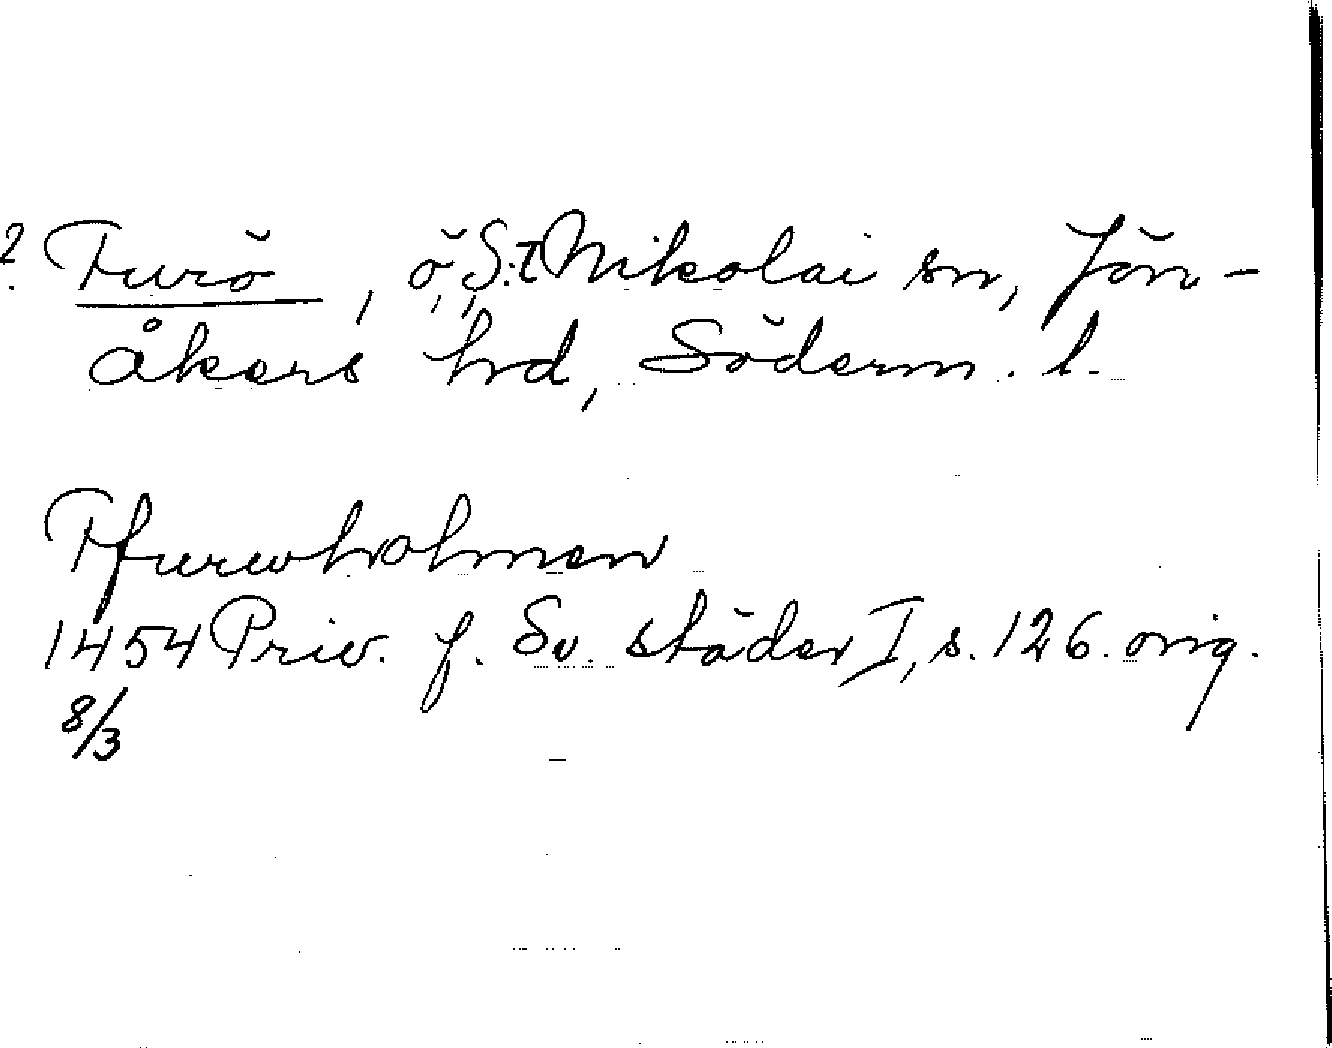 ? Furö, ö, S:t Nikolai sn, Jön-
åkers hd, Söderm. l.
Ffurwholmen
1454 Priv. f. Sv. städer I, s. 126. orig.
8/3